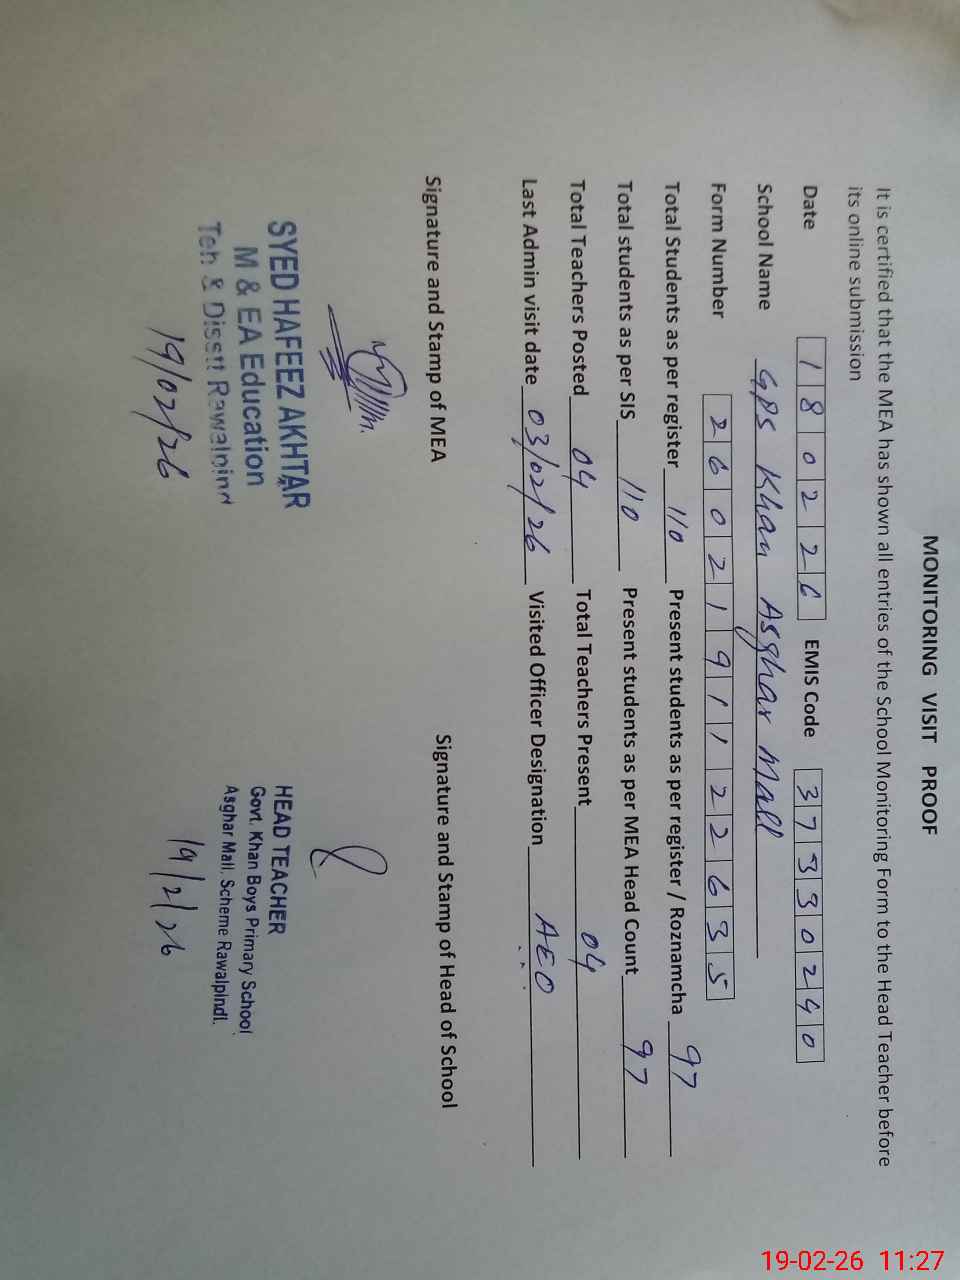 MONITORING VISIT PROOF
It is certified that the MEA has shown all entries of the School Monitoring Form to the Head Teacher before
its online submission
Date 1 8 0 2 2 6 EMIS Code 3 7 3 3 0 2 4 0
School Name GPS Khan Asghar Mall
Form Number 2 6 0 2 1 9 1 1 2 2 6 3 5
Total Students as per register 110 Present students as per register / Roznamcha 97
Total students as per SIS 110 Present students as per MEA Head Count 97
Total Teachers Posted 04 Total Teachers Present 04
Last Admin visit date 03/02/26 Visited Officer Designation AEO
Signature and Stamp of MEA Signature and Stamp of Head of School
SYED HAFEEZ AKHTAR
M & EA Education
Teh & Distt Rawalpindi
19/02/26
HEAD TEACHER
Govt. Khan Boys Primary School
Asghar Mall, Scheme Rawalpindi.
19/2/26
19-02-26 11:27